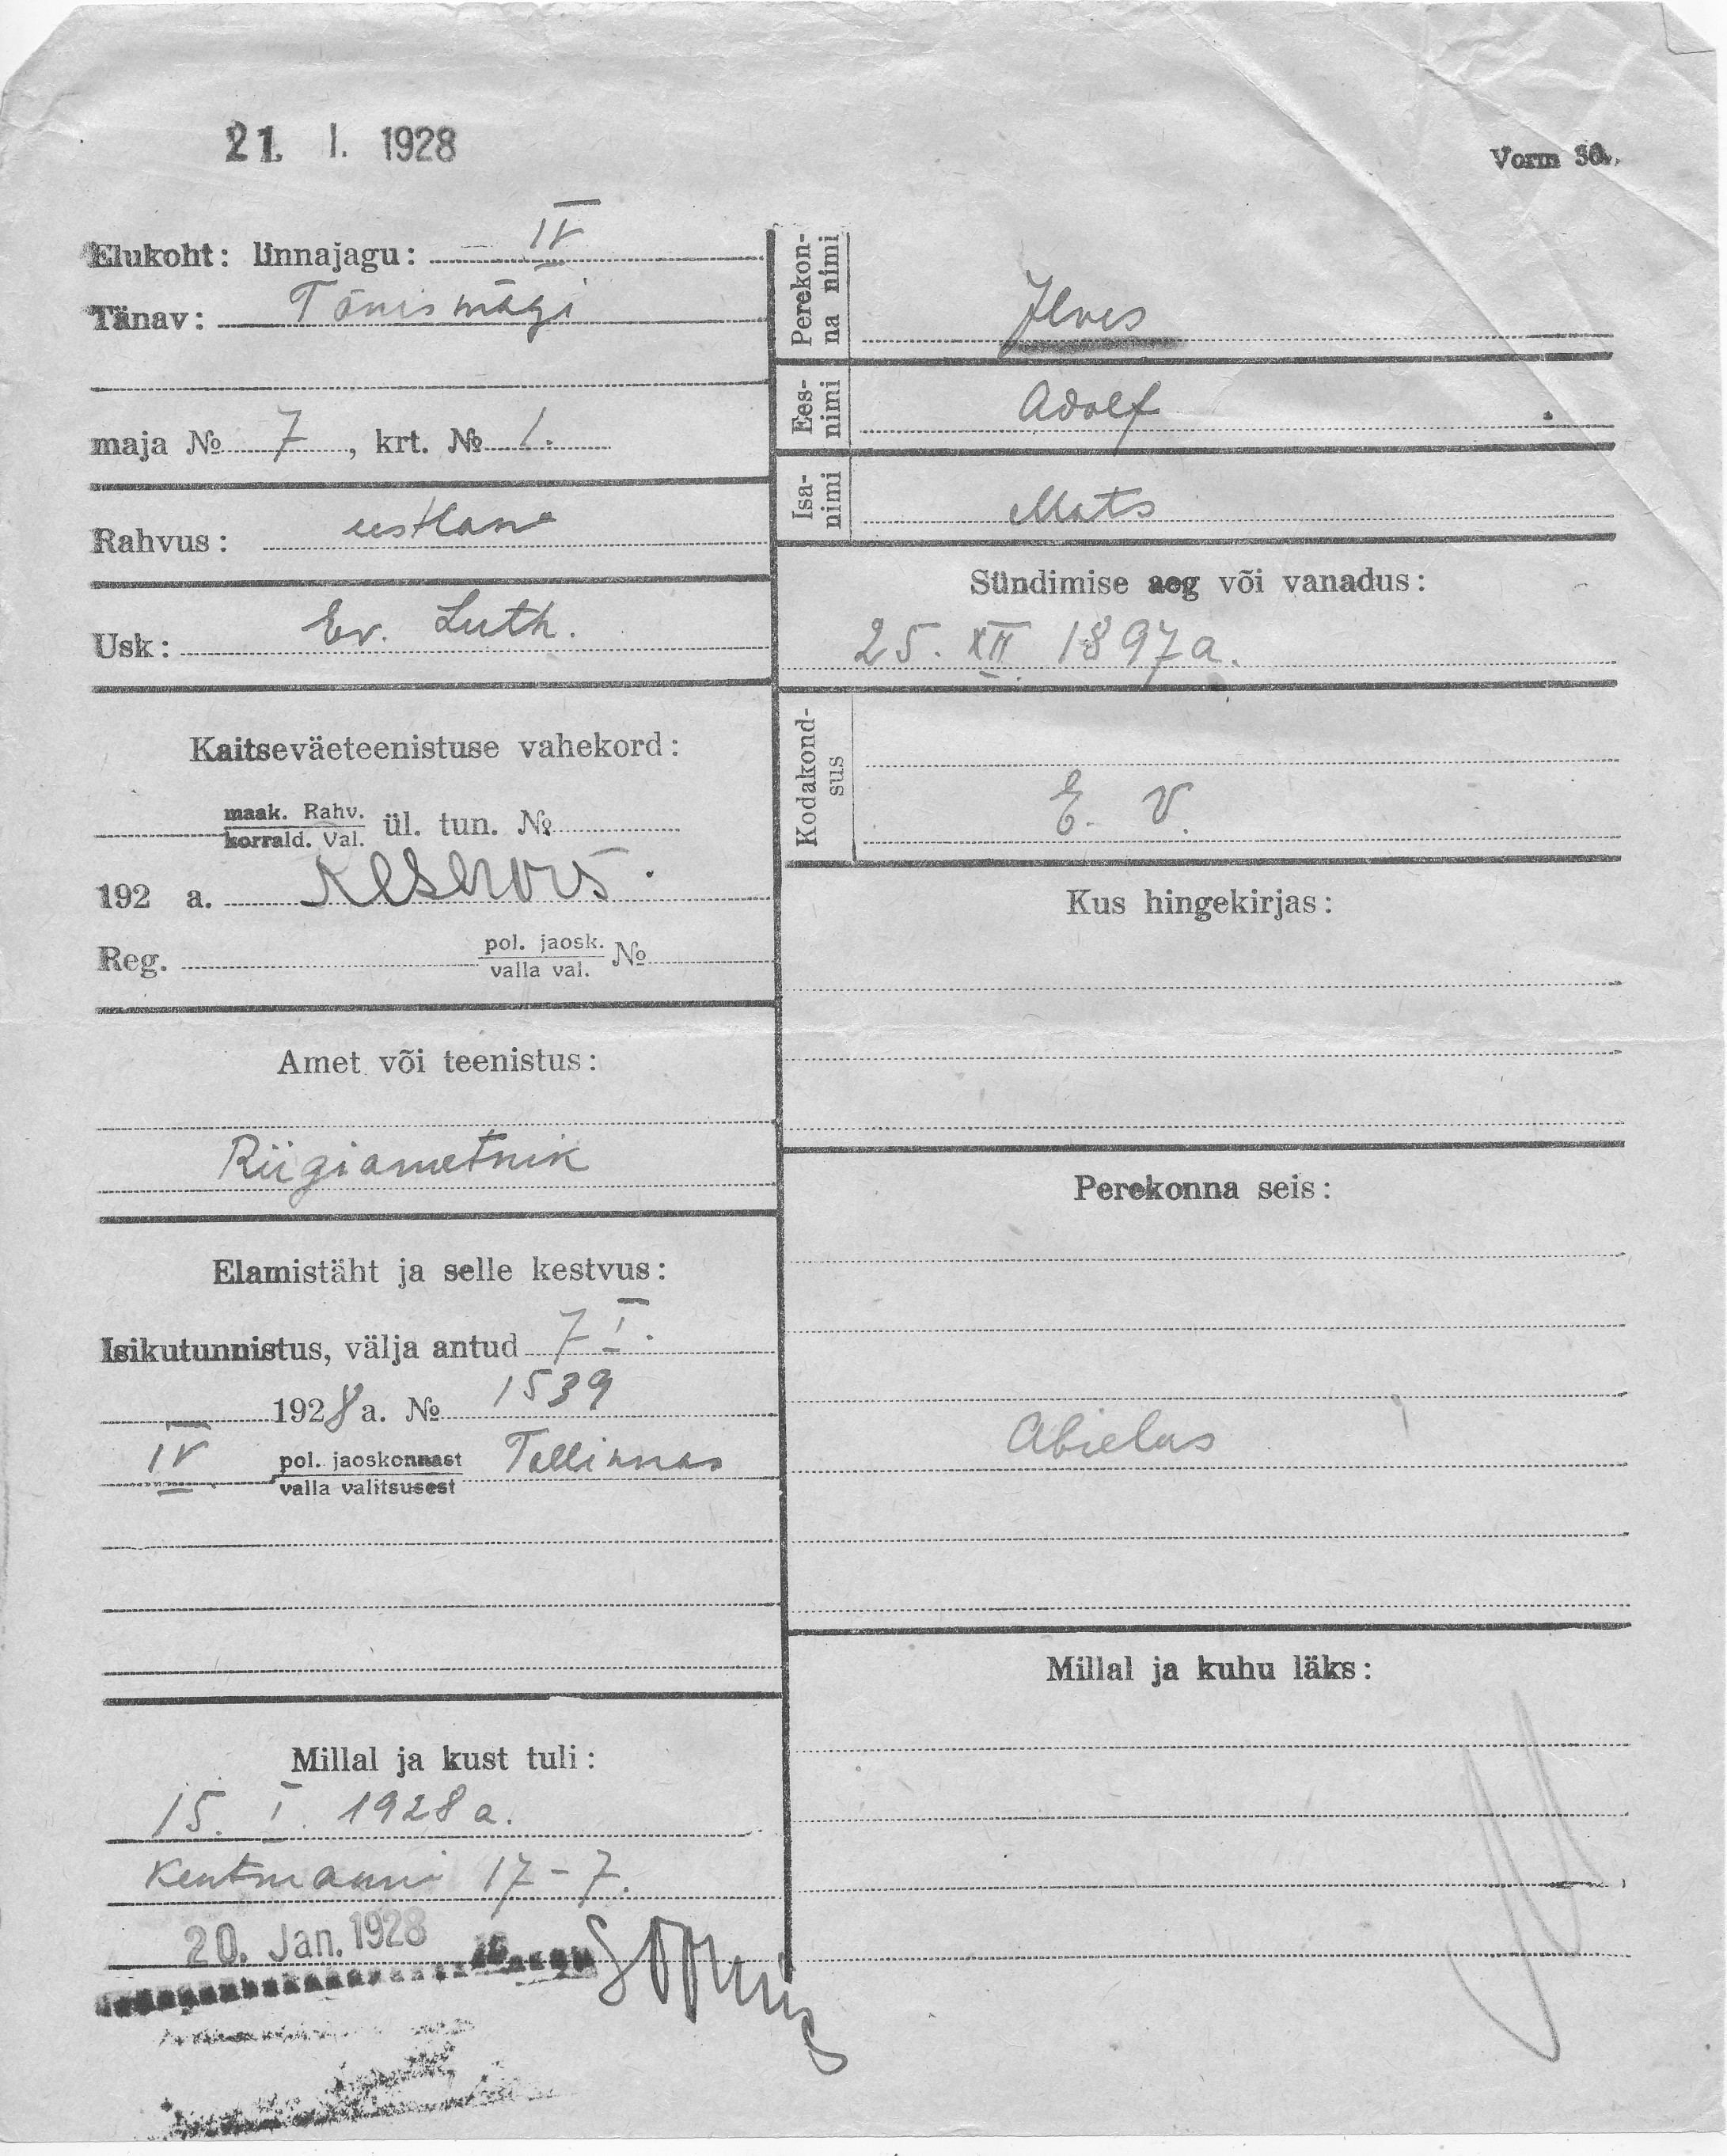 21. I. 1928
Vorm 30.
Elukoht: linnajagu: IV
Tänav: Tõnismägi
maja № 7, krt. № 1.
Rahvus: eestlane
Usk: Ev. Luth.
Kaitseväeteenistuse vahekord:
maak. Rahv.
korrald. Val. ül. tun. №
192 a. Reservis.
Reg. pol. jaosk. №
valla val.
Amet või teenistus:
Riigiametnik
Elamistäht ja selle kestvus:
Isikutunnistus, välja antud 7 I.
1928 a. № 1539
IV pol. jaoskonnast Tallinnas
valla valitsusest
Millal ja kust tuli:
15. I. 1928 a.
Kentmanni 17-7.
20. Jan. 1928
Perekon-
na nimi
Ilves
Ees-
nimi
Adolf
Isa-
nimi
Mats
Sündimise aeg või vanadus:
25. XII 1897 a.
Kodakond-
sus
E. V.
Kus hingekirjas:
Perekonna seis:
Abielus
Millal ja kuhu läks: